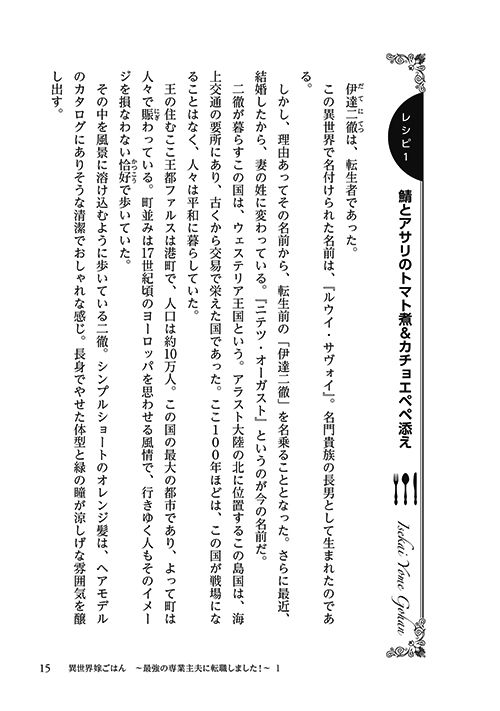 レシピ1
鯖とアサリのトマト煮&カチョエペペ添え
Isekai Yome Gohan
伊達二徹は、転生者であった。
だてにてつ
この異世界で名付けられた名前は、『ルウイ・サヴォイ』。名門貴族の長男として生まれたのであ
る。
しかし、理由あってその名前から、転生前の「伊達二徹」を名乗ることとなった。さらに最近、
結婚したから、妻の姓に変わっている。『ニテツ・オーガスト』というのが今の名前だ。
二徹が暮らすこの国は、ウェステリア王国という。アラスト大陸の北に位置するこの島国は、海
上交通の要所にあり、古くから交易で栄えた国であった。ここ100年ほどは、この国が戦場にな
ることはなく、人々は平和に暮らしていた。
王の住むここ王都ファルスは港町で、人口は約10万人。この国の最大の都市であり、よって町は
人々で賑わっている。町並みは17世紀頃のヨーロッパを思わせる風情で、行きゆく人もそのイメー
にぎ
ジを損なわない恰好で歩いていた。
かっこう
その中を風景に溶け込むように歩いている二徹。シンプルショートのオレンジ髪は、ヘアモデル
のカタログにありそうな清潔でおしゃれな感じ。長身でやせた体型と緑の瞳が涼しげな雰囲気を醸
し出す。
15 異世界嫁ごはん ~最強の専業主夫に転職しました!~ 1